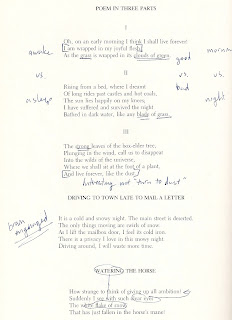 POEM IN THREE PARTS
I
Oh, on an early morning I think I shall live forever!
I am wrapped in my joyful flesh,
As the grass is wrapped in its clouds of green.
awake
vs.
asleep
good
vs.
bad
morning
vs.
night
II
Rising from a bed, where I dreamt
Of long rides past castles and hot coals,
The sun lies happily on my knees;
I have suffered and survived the night
Bathed in dark water, like any blade of grass.
III
The strong leaves of the box-elder tree,
Plunging in the wind, call us to disappear
Into the wilds of the universe,
Where we shall sit at the foot of a plant,
And live forever, like the dust.
interesting not "turn to dust"
DRIVING TO TOWN LATE TO MAIL A LETTER
It is a cold and snowy night. The main street is deserted.
The only things moving are swirls of snow.
As I lift the mailbox door, I feel its cold iron.
There is a privacy I love in this snowy night.
Driving around, I will waste more time.
WATERING THE HORSE
How strange to think of giving up all ambition!
Suddenly I see with such clear eyes
The white flake of snow
That has just fallen in the horse's mane!